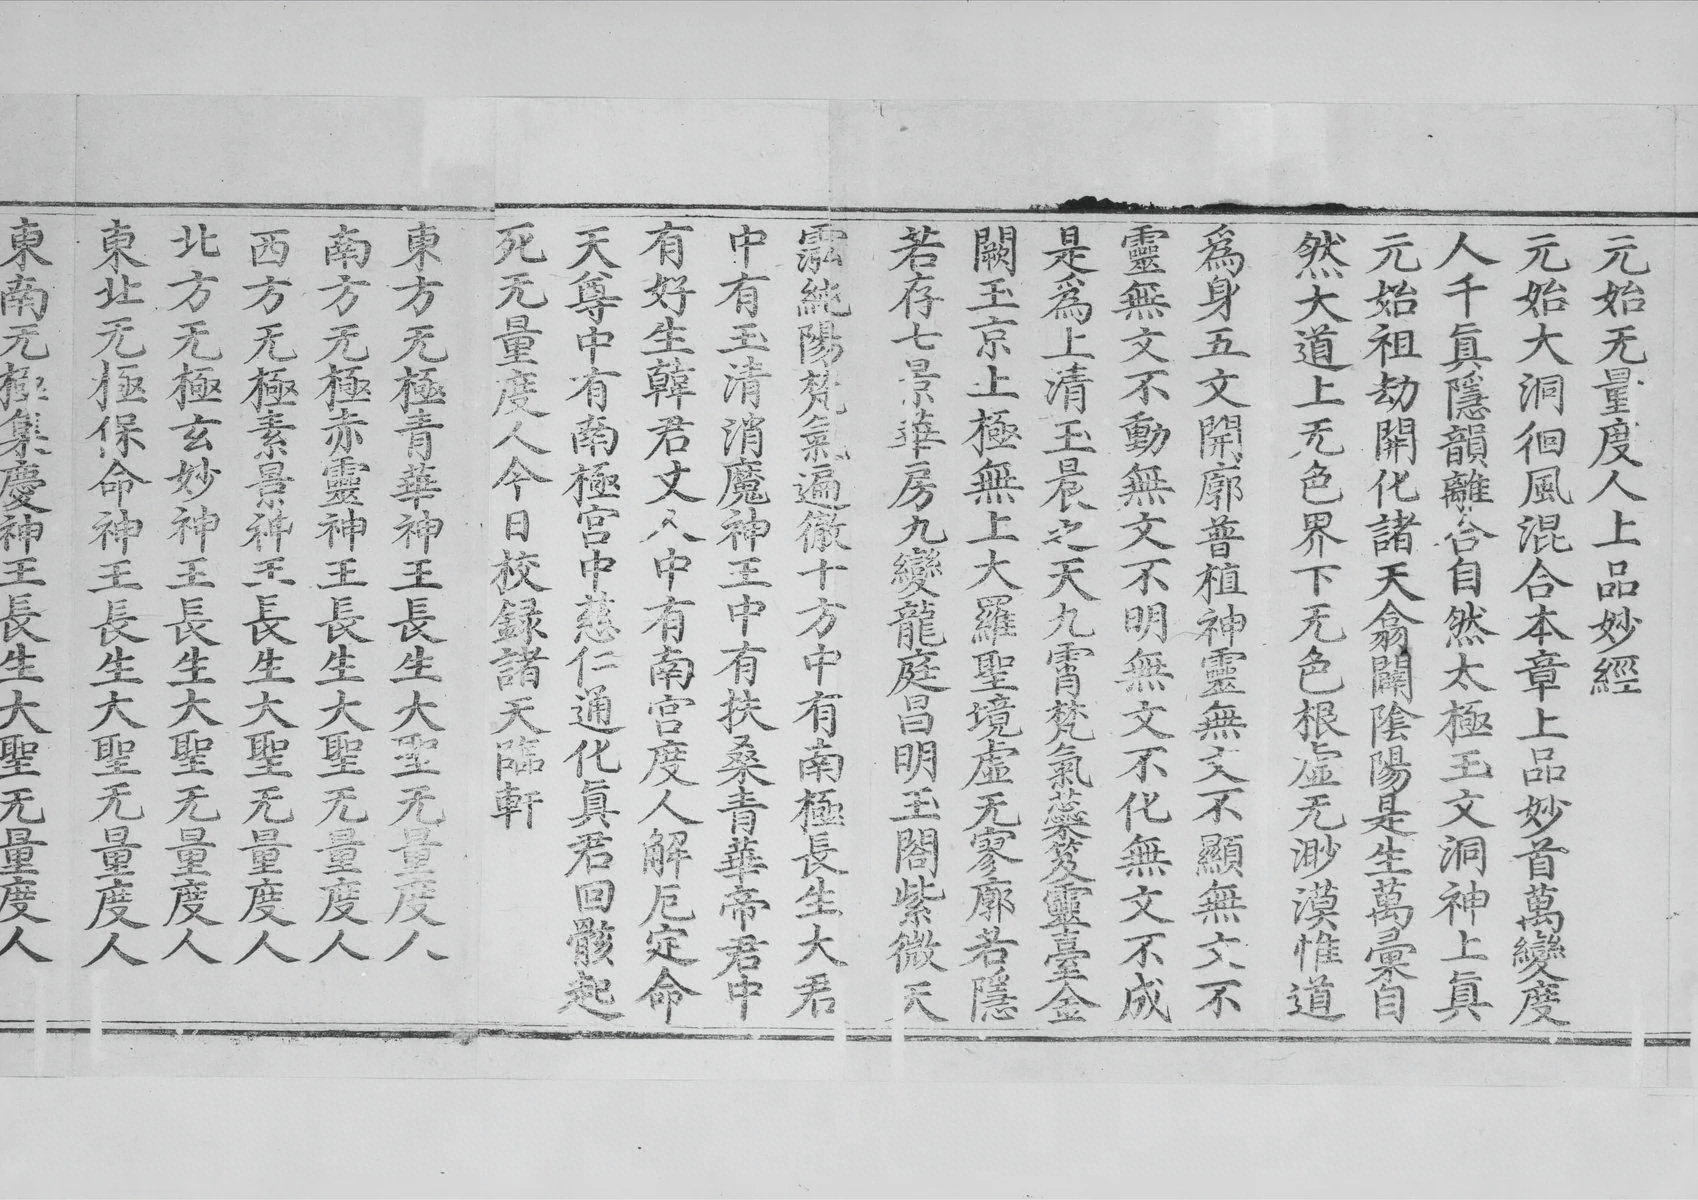 元始无量度人上品妙經
元始大洞徊風混合本章上品妙首萬變度
人千眞隱韻離合自然太極玉文洞神上眞
元始祖劫開化諸天翕闢陰陽是生萬彚自
然大道上无色界下无色根虛无渺漠惟道
爲身五文開廓普植神靈無文不顯無文不
靈無文不動無文不明無文不化無文不成
是爲上清玉晨之天九霄梵氣蘂笈靈臺金
闕玉京上極無上大羅聖境虛无寥廓若隱
若存七景華房九變龍庭昌明玉閤紫微天
純陽梵氣遍徹十方中有南極長生大君
中有玉清消魔神王中有扶桑青華帝君中
有好生韓君丈人中有南宮度人解厄定命
天尊中有南極宮中慈仁通化眞君回骸起
死无量度人今日校録諸天臨軒
東方无極青華神王長生大聖无量度人
南方无極赤靈神王長生大聖无量度人
西方无極素景神王長生大聖无量度人
北方无極玄妙神王長生大聖无量度人
東北无極保命神王長生大聖无量度人
東南无極集慶神王長生大聖无量度人